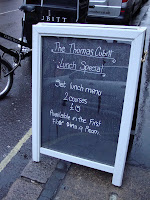 The Thomas Cubitt
Lunch Special
Set lunch menu
2 courses
£15
Available in the First
Floor Dining Room